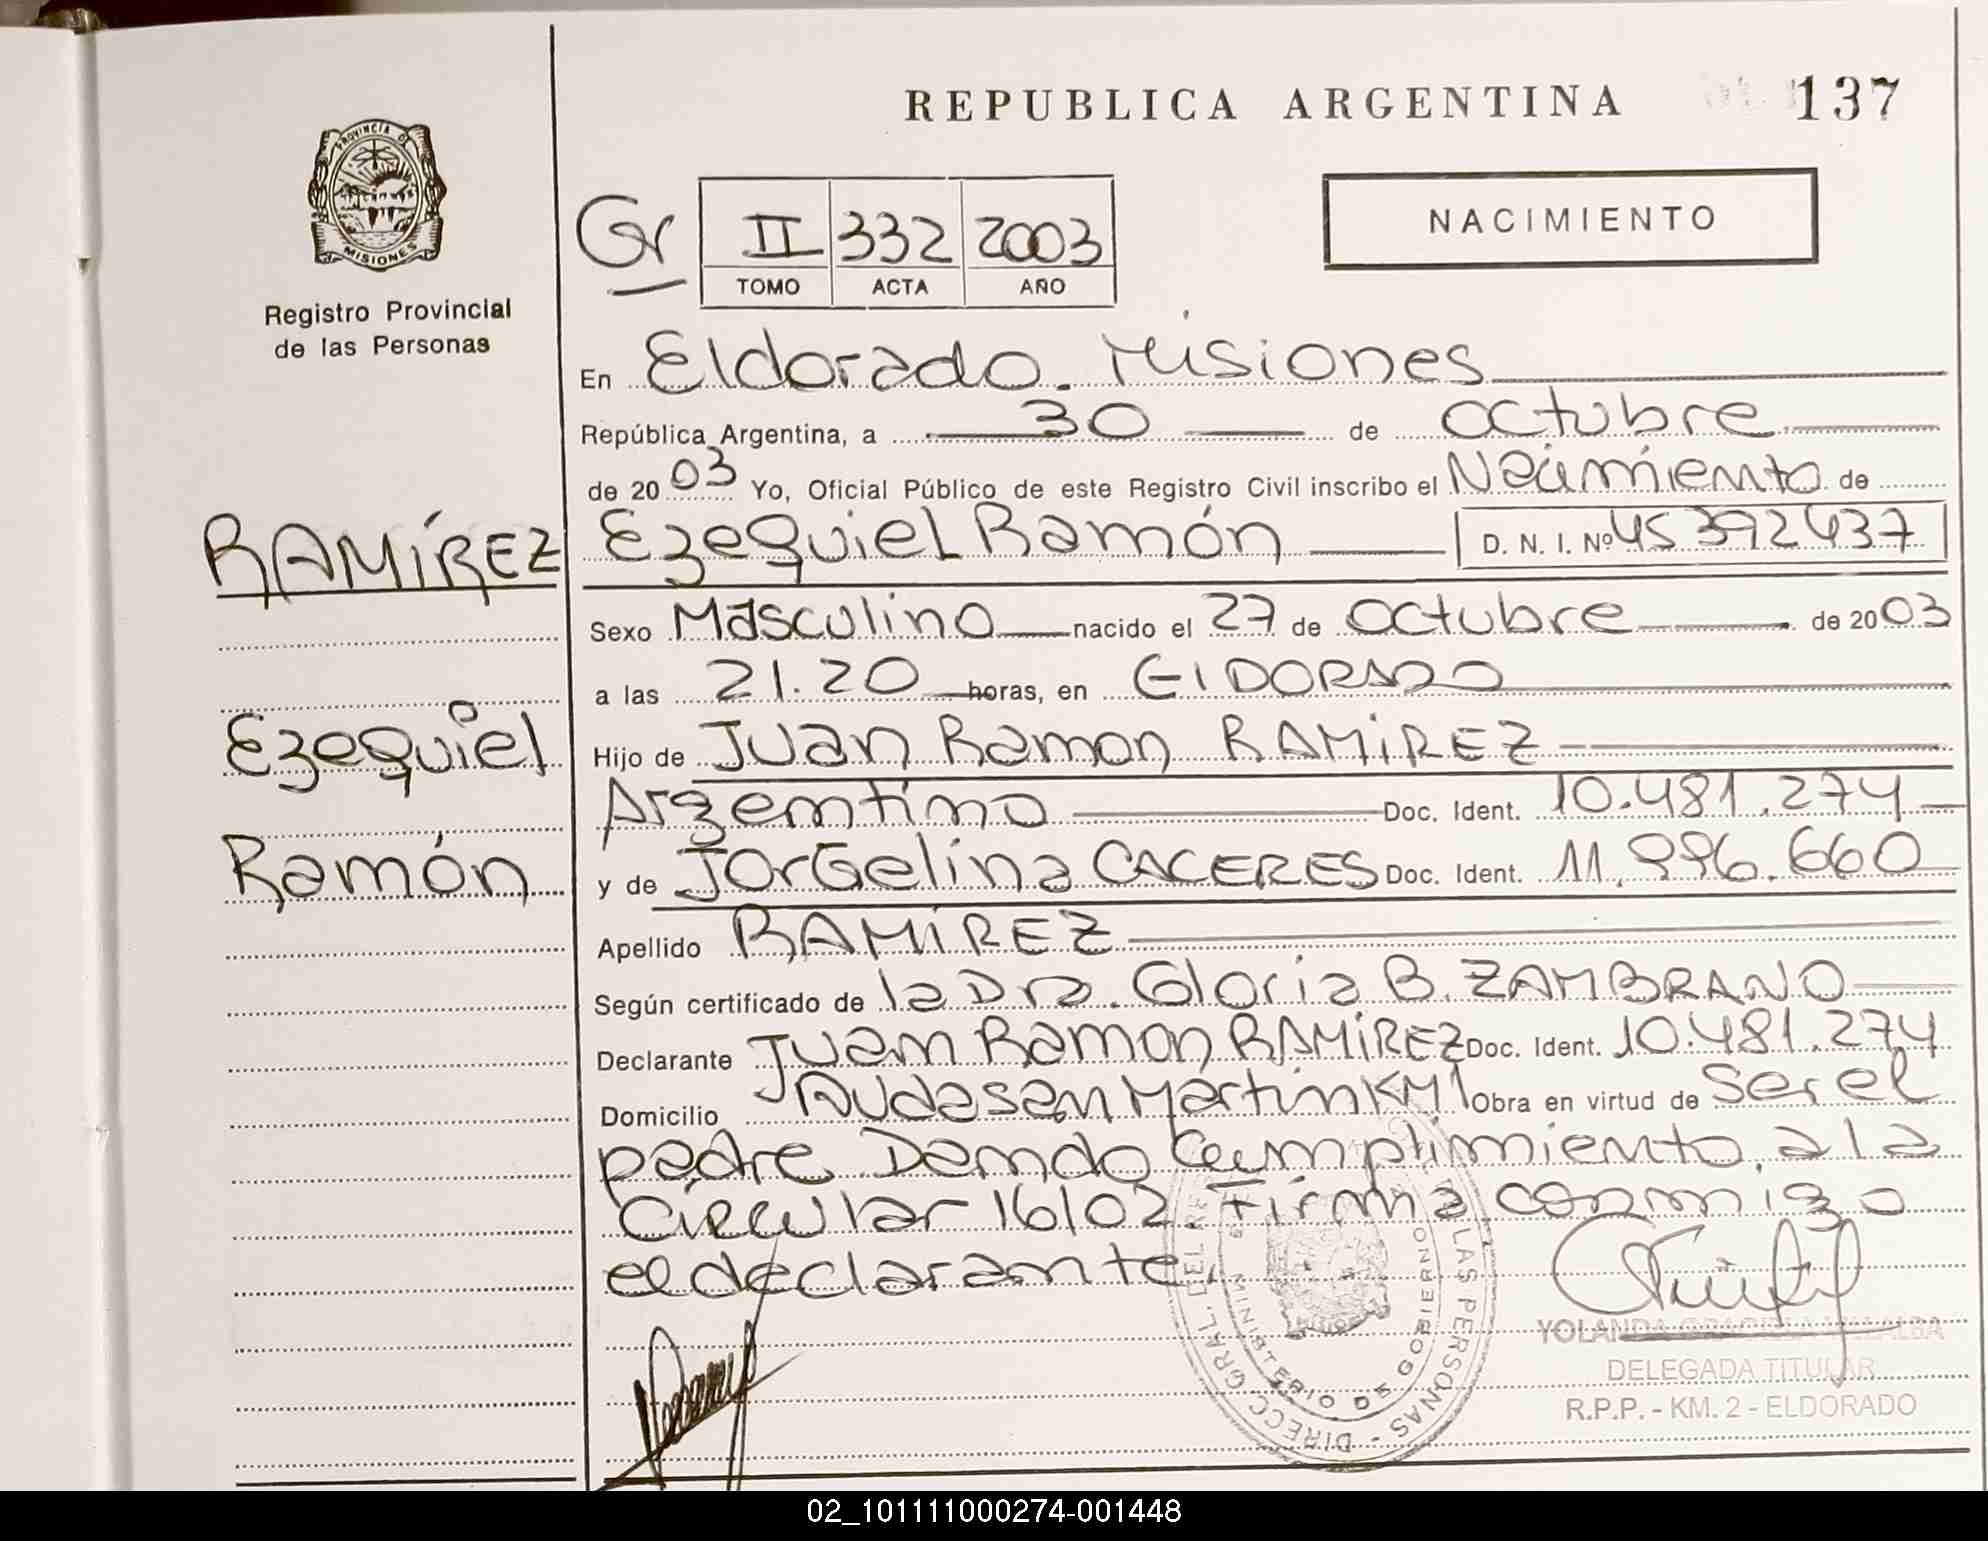 REPUBLICA ARGENTINA
137
PROVINCIA DE
MISIONES
Registro Provincial
de las Personas
Gr
II 332 2003
TOMO ACTA AÑO
NACIMIENTO
En Eldorado. Misiones
República Argentina, a 30 de octubre
de 2003 Yo, Oficial Público de este Registro Civil inscribo el Nacimiento de
RAMÍREZ
Ezequiel Ramón D. N. I. Nº 45 392437
Sexo Masculino nacido el 27 de octubre de 2003
a las 21.20 horas, en ElDORADO
Ezequiel
Hijo de Juan Ramon RAMÍREZ
Argentino Doc. Ident. 10.481.274
Ramón
y de JorGelina CACERES Doc. Ident. 11.996.660
Apellido RAMÍREZ
Según certificado de la Dra. Gloria B. ZAMBRANO
Declarante Juan Ramon RAMÍREZ Doc. Ident. 10.481.274
Domicilio AvdaSan Martin KM1 Obra en virtud de ser el
padre Dando Cumplimiento a la
Circular 16/02. Firma conmigo
el declarante.
DIRECC. GRAL. DEL LAS PERSONAS
MINISTERIO DE GOBIERNO
YOLANDA GRACIELA VILLALBA
DELEGADA TITULAR
R.P.P. - KM. 2 - ELDORADO
02_101111000274-001448